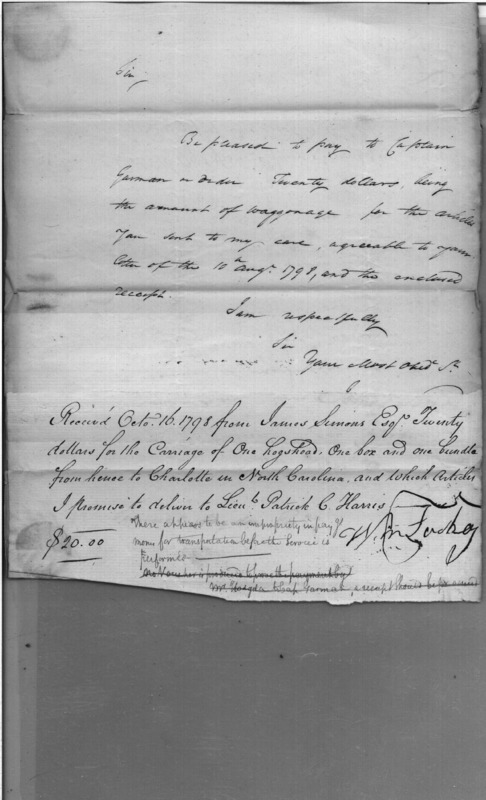 Sir,
Be pleased to pay to Captain
Garman or order Twenty dollars, being
the amount of waggonage for the articles
You sent to my care, agreeable to your
letter of the 10th augt. 1798, and the enclosed
receipt.
I am respectfully
Sir
Your Most Obedt St.
Receiv'd Octo. 16. 1798 from James Simons Esqr. Twenty
dollars for the Carriage of One hogshead. One box and one bundle
from hence to Charlotte in North Carolina. and which Articles
I promise to deliver to Lieut. Patrick C. Harris
$20.00
Wm
There appears to be an impropriety in pays
mony for transportation before the service is
performed
no Voucher is produced to prove the payment by
Mr. Hodgdon to Cap Garman, a receipt should be produced